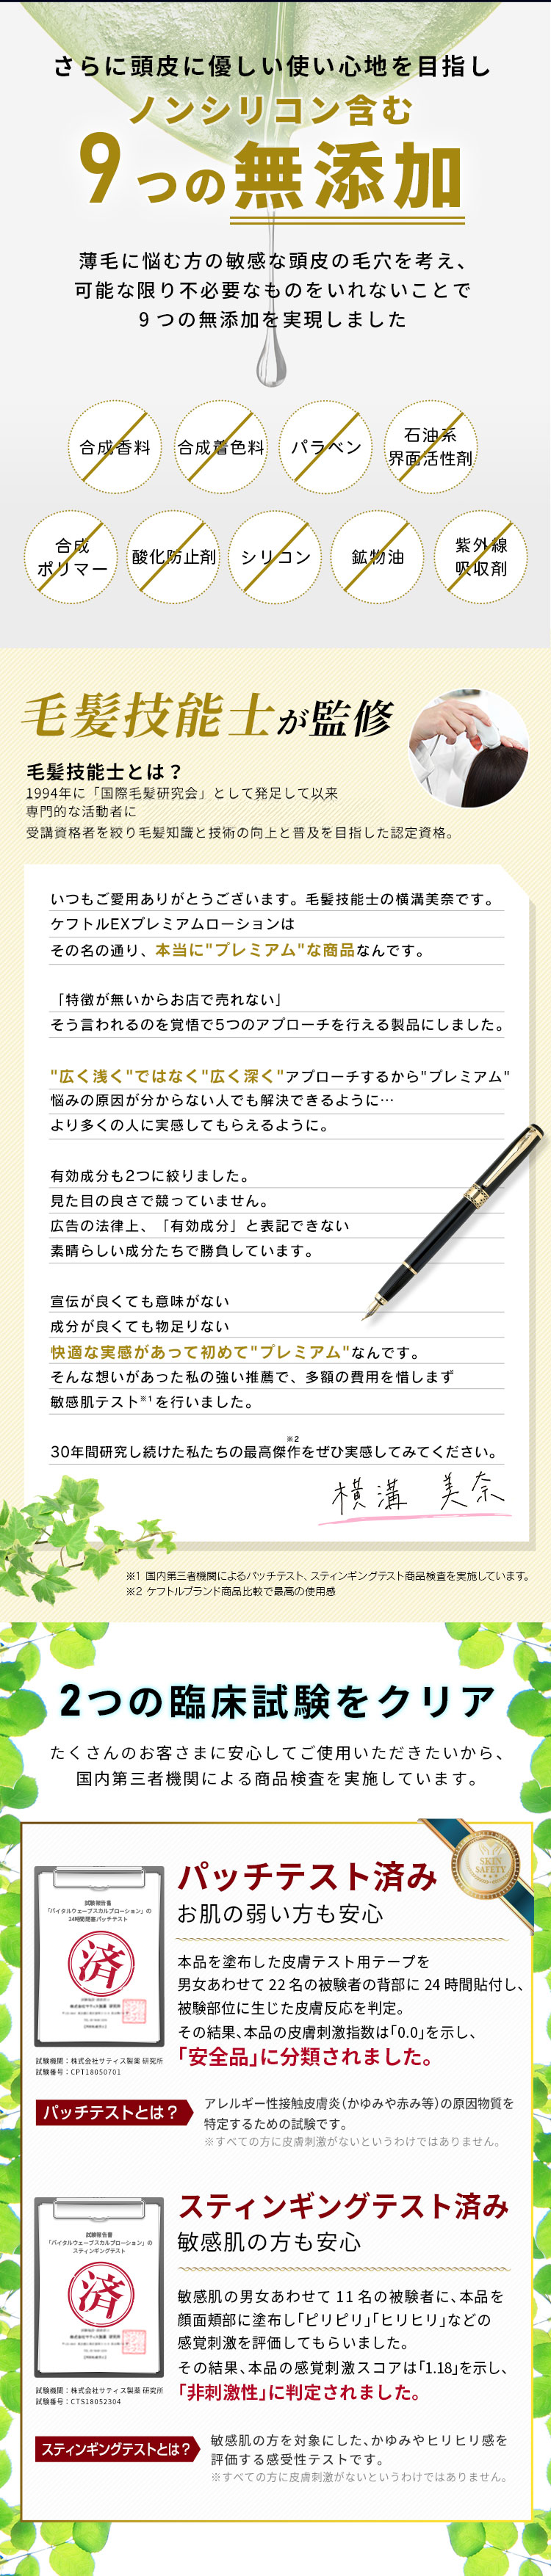 さらに頭皮に優しい使い心地を目指し
ノンシリコン含む
9つの無添加
薄毛に悩む方の敏感な頭皮の毛穴を考え、
可能な限り不必要なものをいれないことで
9つの無添加を実現しました
合成香料
合成着色料
パラベン
石油系
界面活性剤
合成
ポリマー
酸化防止剤
シリコン
鉱物油
紫外線
吸収剤
毛髪技能士が監修
毛髪技能士とは?
1994年に「国際毛髪研究会」として発足して以来
専門的な活動者に
受講資格者を絞り毛髪知識と技術の向上と普及を目指した認定資格。
いつもご愛用ありがとうございます。毛髪技能士の横溝美奈です。
ケフトルEXプレミアムローションは
その名の通り、本当に"プレミアム"な商品なんです。
「特徴が無いからお店で売れない」
そう言われるのを覚悟で5つのアプローチを行える製品にしました。
"広く浅く"ではなく"広く深く"アプローチするから"プレミアム"
悩みの原因が分からない人でも解決できるように…
より多くの人に実感してもらえるように。
有効成分も2つに絞りました。
見た目の良さで競っていません。
広告の法律上、「有効成分」と表記できない
素晴らしい成分たちで勝負しています。
宣伝が良くても意味がない
成分が良くても物足りない
快適な実感があって初めて"プレミアム"なんです。
そんな想いがあった私の強い推薦で、多額の費用を惜しまず
敏感肌テスト※1を行いました。
※2
30年間研究し続けた私たちの最高傑作をぜひ実感してみてください。
横溝 美奈
※1 国内第三者機関によるパッチテスト、スティンギングテスト商品検査を実施しています。
※2 ケフトルブランド商品比較で最高の使用感
2つの臨床試験をクリア
たくさんのお客さまに安心してご使用いただきたいから、
国内第三者機関による商品検査を実施しています。
SKIN
SAFETY
パッチテスト済み
お肌の弱い方も安心
試験報告書
「バイタルウェーブスカルプローション」の
24時間閉塞パッチテスト
済
試験機関：株式会社サティス製薬 研究所
試験番号：CPT18050701
本品を塗布した皮膚テスト用テープを
男女あわせて 22 名の被験者の背部に 24 時間貼付し、
被験部位に生じた皮膚反応を判定。
その結果、本品の皮膚刺激指数は「0.0」を示し、
「安全品」に分類されました。
パッチテストとは？
アレルギー性接触皮膚炎(かゆみや赤み等)の原因物質を
特定するための試験です。
※すべての方に皮膚刺激がないというわけではありません。
スティンギングテスト済み
敏感肌の方も安心
試験報告書
「バイタルウェーブスカルプローション」の
スティンギングテスト
済
試験機関：株式会社サティス製薬 研究所
試験番号：CTS18052304
敏感肌の男女あわせて 11 名の被験者に、本品を
顔面頬部に塗布し「ピリピリ」「ヒリヒリ」などの
感覚刺激を評価してもらいました。
その結果、本品の感覚刺激スコアは「1.18」を示し、
「非刺激性」に判定されました。
スティンギングテストとは？
敏感肌の方を対象にした、かゆみやヒリヒリ感を
評価する感受性テストです。
※すべての方に皮膚刺激がないというわけではありません。